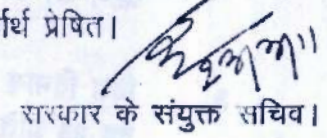 र्थ प्रेषित।
सरकार के संयुक्त सचिव।